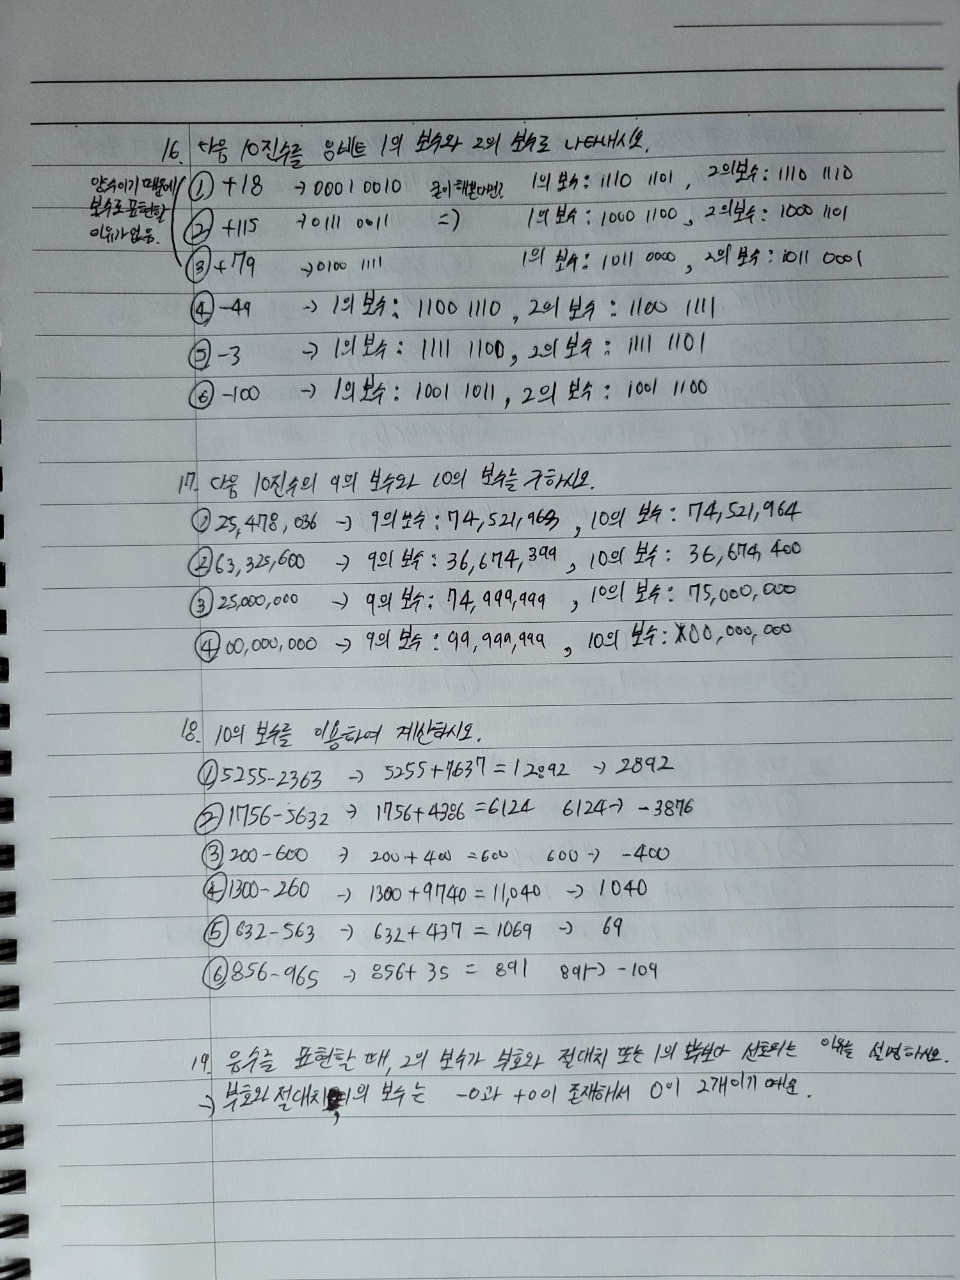 16. 다음 10진수를 8비트 1의 보수와 2의 보수로 나타내시오.
양수이기 때문에
보수로 표현할
이유가 없음.
① +18 → 0001 0010 굳이 해본다면? 1의 보수: 1110 1101, 2의 보수: 1110 1110
② +115 → 0111 0011 => 1의 보수: 1000 1100, 2의 보수: 1000 1101
③ +79 → 0100 1111 1의 보수: 1011 0000, 2의 보수: 1011 0001
④ -49 → 1의 보수: 1100 1110, 2의 보수: 1100 1111
⑤ -3 → 1의 보수: 1111 1100, 2의 보수: 1111 1101
⑥ -100 → 1의 보수: 1001 1011, 2의 보수: 1001 1100
17. 다음 10진수의 9의 보수와 10의 보수를 구하시오.
① 25,478,036 → 9의 보수: 74,521,963, 10의 보수: 74,521,964
② 63,325,600 → 9의 보수: 36,674,399, 10의 보수: 36,674,400
③ 25,000,000 → 9의 보수: 74,999,999, 10의 보수: 75,000,000
④ 00,000,000 → 9의 보수: 99,999,999, 10의 보수: 00,000,000
18. 10의 보수를 이용하여 계산하시오.
① 5255-2363 → 5255+7637=12892 → 2892
② 1756-5632 → 1756+4386=6124 6124→ -3876
③ 200-600 → 200+400=600 600→ -400
④ 1300-260 → 1300+9740=11,040 → 1040
⑤ 632-563 → 632+437=1069 → 69
⑥ 856-965 → 856+35=891 891→ -109
19. 음수를 표현할 때, 2의 보수가 부호와 절대치 또는 1의 보수보다 선호되는 이유를 설명하시오.
→ 부호와 절대치, 1의 보수는 -0과 +0이 존재해서 0이 2개이기 때문.